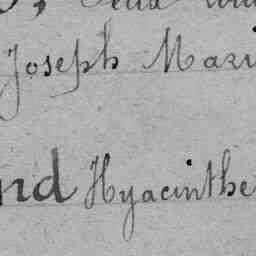 Joseph Mari
nd Hyacinthe